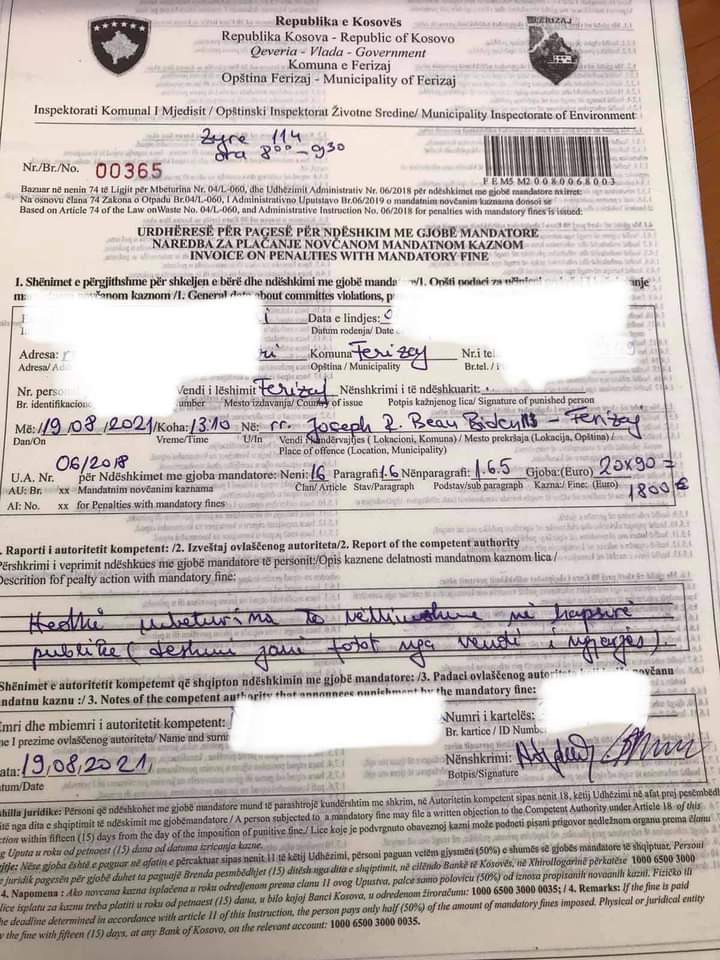 Republika e Kosovës
Republika Kosova - Republic of Kosovo
Qeveria - Vlada - Government
Komuna e Ferizaj
Opština Ferizaj - Municipality of Ferizaj
ERIZAJ
Inspektorati Komunal I Mjedisit / Opštinski Inspektorat Životne Sredine/ Municipality Inspectorate of Environment
Zyre 114
ora 8 00 - 9 30
Nr./Br./No. 00365
FEM5 M2 0080068003
Bazuar në nenin 74 të Ligjit për Mbeturina Nr. 04/L-060, dhe Udhëzimit Administrativ Nr. 06/2018 për ndëshkimet me gjobë mandatore
Na osnovu člana 74 Zakona o Otpadu Br.04/L-060, I Administrativno Uputstavo Br.06/2019 o mandatnim novčanim kaznama donosi se
Based on Article 74 of the Law onWaste No. 04/L-060, and Administrative Instruction No. 06/2018 for penalties with mandatory fines is issued.
URDHËRESË PËR PAGESË PËR NDËSHKIM ME GJOBË MANDATORE
NAREDBA ZA PLAČANJE NOVČANIM MANDATNOM KAZNOM
INVOICE ON PENALTIES WITH MANDATORY FINE
I. Shënimet e përgjithshme për shkeljen e bërë dhe ndëshkimi me gjobë /1. Opšti podaci za
novčanom kaznom /1. General data about committes violations,
Data e lindjes:
Datum rođenja/ Date
Adresa: Komuna Ferizaj Nr.i tel.
Adresa/ Opština / Municipality Br.tel. /
Nr. Vendi i lëshimit Ferizaj Nënshkrimi i të ndëshkuarit:
Br. Mesto izdavanja/ of issue Potpis kažnjenog lica/ Signature of punished person
Më: 19,08,2021/Koha: 13:10 Në: rr. Joseph R. Beau Biden - Ferizaj
Dan/On Vreme/Time U/In Vendi Kundërvajtjes ( Lokacioni, Komuna) / Mesto prekršaja (Lokacija, Opština) /
Place of offence (Location, Municipality)
06/2018
U.A. Nr. për Ndëshkimet me gjoba mandatore: Neni: 16 Paragrafi 1.6 Nënparagrafi: 1.6.5 Gjoba:(Euro) 20x90 =
AU: Br. xx Mandatnim novčanim kaznama Član/ Article Stav/Paragraph Podstav/sub paragraph Kazna/ Fine: (Euro) 1800 €
AI: No. xx for Penalties with mandatory fines
. Raporti i autoritetit kompetent: /2. Izveštaj ovlaščenog autoriteta/2. Report of the competent authority
Përshkrimi i veprimit ndëshkues me gjobë mandatore të personit:/Opis kaznene delatnosti mandatnom kaznom lica /
Descrition fof pealty action with mandatory fine:
Hedhë mbeturina të në hapsirë
publike ( deshmi janë fotot nga vendi i ngjarjes).
Shënimet e autoritetit kompetemt që shqipton ndëshkimin me gjobë mandatore: /3. Padaci ovlaščenog
kaznu :/ 3. Notes of the competent authority that announces punishment by the mandatory fine:
Emri dhe mbiemri i autoritetit kompetent: Numri i kartelës:
me I prezime ovlaščenog autoriteta/ Name and Br. kartice / ID
ata: 19,08,2021, Nënshkrimi:
atum/Date Botpis/Signature
juridike: Përsoni që ndëshkohet me gjobë mandatore mund të parashtrojë kundërshtim me shkrim, në Autoritetin kompetent sipas nenit 18, këtij Udhëzimi në afat prej
nga dita e shqiptimit të ndëshkimit me gjobëmandatore / A person subjected to a mandatory fine may file a written objection to the Competent Authority under Article 18 of this
within fifteen (15) days from the day of the imposition of punitive fine./ Lice koje je podvrgnuto obaveznoj kazni može podoti pisani prigovor nedležnom organu prema članu
Uputa u roku od petnaest (15) dana od datuma izricanja kazne.
Nëse gjoba është e paguar në afatin e përcaktuar sipas nenit 11 të këtij Udhëzimi, personi paguan vetëm gjysmën (50%) e shumës së gjobës mandatore të shqiptuar. Personi
juridik pagesën për gjobë duhet ta paguajë Brenda pesmbëdhjet (15) ditësh nga dita e shqiptimit, në cilëndo Bankë të Kosovës, në Xhirollogarinë përkatëse 1000 6500 3000
4. Napomena : Ako novcana kazna isplačena u roku odredjenom prema clanu 11 ovog Upustva, palce samo polovicu (50%) od iznosa propisanih novaanih kaznil. Fizičko ili
lice isplatu za kaznu treba platiti u roku od petnaest (15) dana, u bilo kojoj Banci Kosova, u odredenom žiroračun: 1000 6500 3000 0035; / 4. Remarks: If the fine is paid
the deadline determined in accordance with article 11 of this Instruction, the person pays only half (50%) of the amount of mandatory fines imposed. Physical or juridical entity
the fine with fifteen (15) days, at any Bank of Kosovo, on the relevant account: 1000 6500 3000 0035.